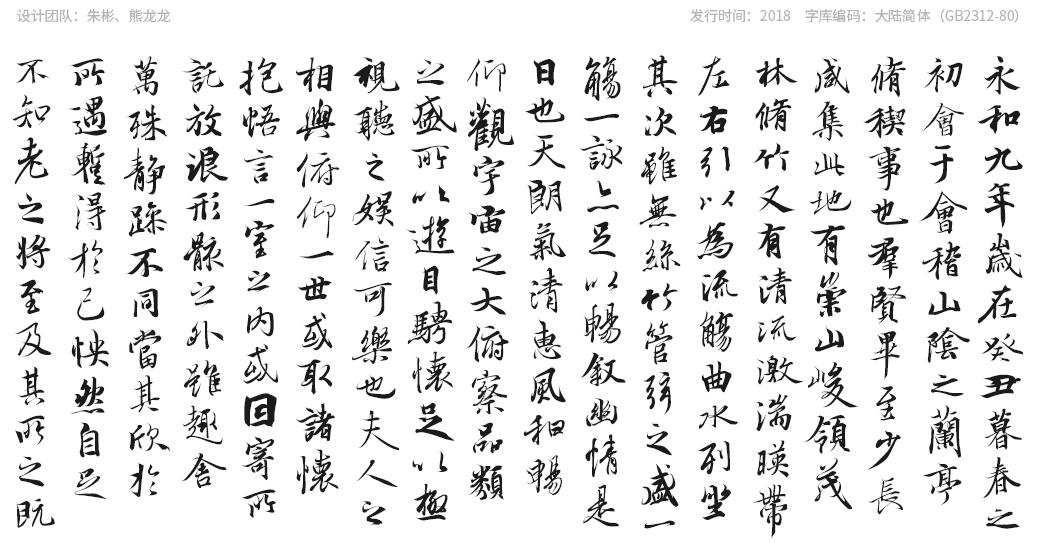 设计团队：朱彬、熊龙龙
发行时间：2018 字库编码：大陆简体（GB2312-80）
永和九年歲在癸丑暮春之
初會于會稽山陰之蘭亭
脩稧事也羣賢畢至少長
咸集此地有崇山峻領茂
林脩竹又有清流激湍暎帶
左右引以為流觴曲水列坐
其次雖無絲竹管弦之盛一
觴一詠亦足以暢叙幽情是
日也天朗氣清惠風和暢
仰觀宇宙之大俯察品類
之盛所以遊目騁懷足以極
視聽之娛信可樂也夫人之
相與俯仰一世或取諸懷
抱悟言一室之內或因寄所
託放浪形骸之外雖趣舍
萬殊静躁不同當其欣於
所遇暫得於己怏然自足
不知老之將至及其所之既